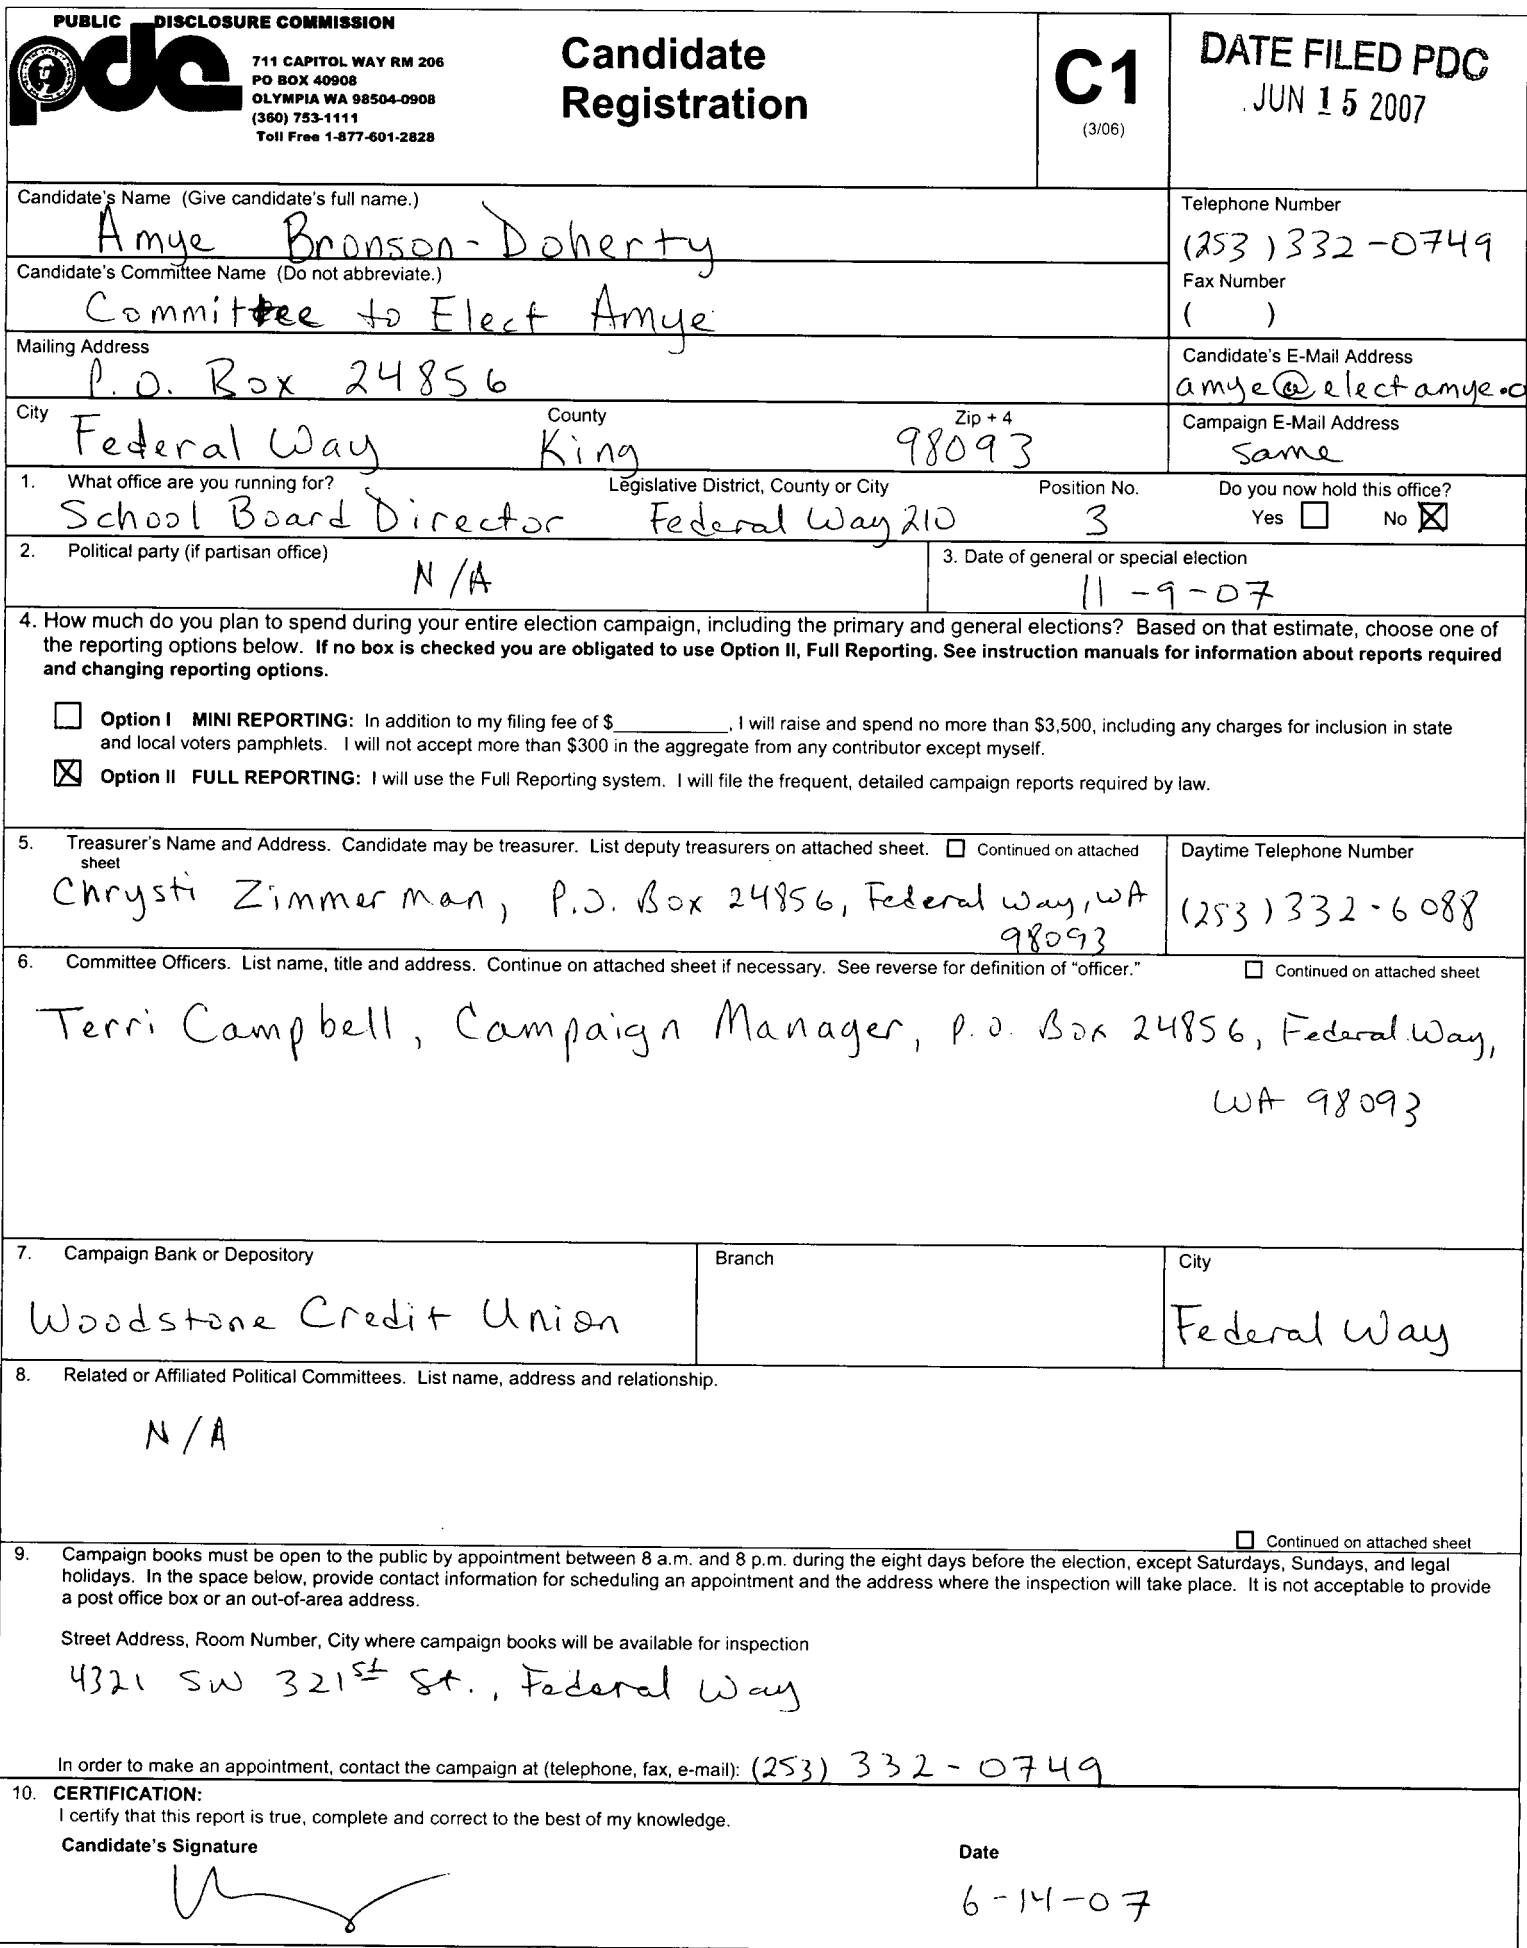 PUBLIC DISCLOSURE COMMISSION
pdc
711 CAPITOL WAY RM 206
PO BOX 40908
OLYMPIA WA 98504-0908
(360) 753-1111
Toll Free 1-877-601-2828
Candidate
Registration
C1
(3/06)
DATE FILED PDC
JUN 15 2007
Candidate's Name (Give candidate's full name.)
Amye Bronson-Doherty
Telephone Number
(253) 332-0749
Candidate's Committee Name (Do not abbreviate.)
Committee to Elect Amye
Fax Number
( )
Mailing Address
P.O. Box 24856
Candidate's E-Mail Address
amye@electamye.c
City County Zip + 4
Federal Way King 98093
Campaign E-Mail Address
same
1. What office are you running for? Legislative District, County or City Position No. Do you now hold this office?
School Board Director Federal Way 210 3 Yes ☐ No ☒
2. Political party (if partisan office)
N/A
3. Date of general or special election
11-9-07
4. How much do you plan to spend during your entire election campaign, including the primary and general elections? Based on that estimate, choose one of
the reporting options below. If no box is checked you are obligated to use Option II, Full Reporting. See instruction manuals for information about reports required
and changing reporting options.
☐ Option I MINI REPORTING: In addition to my filing fee of $__________, I will raise and spend no more than $3,500, including any charges for inclusion in state
and local voters pamphlets. I will not accept more than $300 in the aggregate from any contributor except myself.
☒ Option II FULL REPORTING: I will use the Full Reporting system. I will file the frequent, detailed campaign reports required by law.
5. Treasurer's Name and Address. Candidate may be treasurer. List deputy treasurers on attached sheet. ☐ Continued on attached
sheet
Chrysti Zimmerman, P.O. Box 24856, Federal Way, WA
98093
Daytime Telephone Number
(253) 332-6088
6. Committee Officers. List name, title and address. Continue on attached sheet if necessary. See reverse for definition of "officer." ☐ Continued on attached sheet
Terri Campbell, Campaign Manager, P.O. Box 24856, Federal Way,
WA 98093
7. Campaign Bank or Depository Branch City
Woodstone Credit Union Federal Way
8. Related or Affiliated Political Committees. List name, address and relationship.
N/A
☐ Continued on attached sheet
9. Campaign books must be open to the public by appointment between 8 a.m. and 8 p.m. during the eight days before the election, except Saturdays, Sundays, and legal
holidays. In the space below, provide contact information for scheduling an appointment and the address where the inspection will take place. It is not acceptable to provide
a post office box or an out-of-area address.
Street Address, Room Number, City where campaign books will be available for inspection
4321 SW 321st St., Federal Way
In order to make an appointment, contact the campaign at (telephone, fax, e-mail): (253) 332-0749
10. CERTIFICATION:
I certify that this report is true, complete and correct to the best of my knowledge.
Candidate's Signature Date
6-14-07